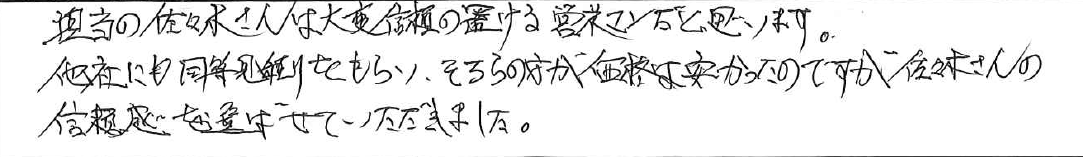 担当の佐々木さんは大変信頼の置ける営業マンだと思います。
他社にも同等見積りをもらい、そちらの方が価格は安かったのですが佐々木さんの
信頼感で選ばせていただきました。